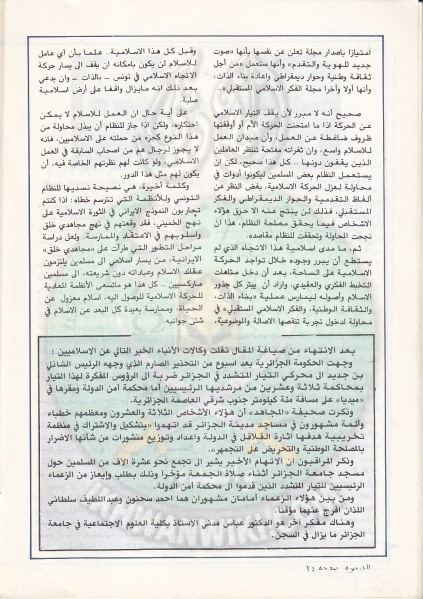 امتيازا باصدار مجلة تعلن عن نفسها بأنها «صوت
جديد للهوية والتقدم» وأنها ستعمل «من أجل
ثقافة وطنية وحوار ديمقراطي واعادة بناء الذات،
وأنها أولا وأخرا مجلة الفكر الاسلامي المستقبلي»..
صحيح أنه لا مبرر لأن يقف التيار الاسلامي
عن الحركة اذا ما امتحنت الحركة الأم أو أوقفتها
ظروف ضاغطة عن العمل، وأن ميدان العمل
للاسلام واسع، وان ثغراته مفتحة تنتظر العاملين
الذين يقفون دونها .. كل هذا صحيح، لكن ان
يستعمل النظام بعض المسلمين ليكونوا أدوات في
محاولة لعزل الحركة الاسلامية، بغض النظر عن
ألفاظ التقدمية والحوار الديمقراطي والفكر
المستقبلي، فذلك لن ينتج عنه الا حرق هؤلاء
الاشخاص فيما يحقق مصلحة النظام، هذا أن
نجحت المحاولة وتحققت للنظام مقاصده.
ثم، ما مدى اسلامية هذا الاتجاه الذي لم
يستطع أن يبرر وجوده خلال تواجد الحركة
الاسلامية على الساحة، بعد أن دخل متاهات
التخبط الفكري والعقيدي، وأراد أن يبتر كل جذور
الاسلام وأصوله ليمارس عملية «بناء الذات،
والثقافة الوطنية، والفكر الاسلامي المستقبلي» في
محاولة لدخول تجربة تنقصها الاصالة والموضوعية،
وقبل كل هذا الاسلامية.. علما بأن أي عامل
للاسلام لن يكون بامكانه ان يقف الى يسار حركة
الاتجاه الاسلامي في تونس ـ بالذات ـ وان يدعي
بعد ذلك انه مايزال واقفا على أرض اسلامية
صلبة
على أية حال ان العمل للاسلام لا يمكن
احتكاره، ولكن اذا جاز للنظام أن يبذل محاولة من
هذا النوع كجزء من حملته على الاسلاميين، فانه
لا يجوز لرجال هم من أصحاب السابقة في العمل
الاسلامي، ولو كانت لهم نظرتهم الخاصة فيه، أن
يكون لهم مثل هذا الدور.
وكلمة أخيرة، هي نصيحة نسديها للنظام
التونسي وللأنظمة التي تترسم خطاه: اذا كنتم
تحاربون النموذج الايراني في الثورة الاسلامية على
نهج الخميني، فقد وقعتهم في نهج مجاهدي خلق
واسلوبهم في الاعتقاد والممارسة. ولعل دراسة
مراحل التطور التي طرأت على «مجاهدي خلق»
الايرانية، من يسار اسلامي الى مسلمين يلتزمون
عقائد الاسلام وعباداته دون شريعته، الى مسلمين
ماركسيين .. كل هذا هو ماتسعى الأنظمة المعادية
للحركة الاسلامية للوصول اليه، اسلام معزول عن
الحياة، وممارسة بعيدة كل البعد عن الاسلام في
شتى جوانبه
بعد الانتهاء من صياغة المقال نقلت وكالات الأنباء الخبر التالي عن الاسلاميين :
وجهت الحكومة الجزائرية بعد اسبوع من التحذير الصارم الذي وجهه الرئيس الشاذلي
بن جديد الى محركي التيار المتشدد في الجزائر ضربة الى الرؤوس المفكرة لهذا التيار
بمحاكمة ثلاثة وعشرين من مرشديها الرئيسيين أما محكمة أمن الدولة ومقرها في
«ميديا» على مسافة مئة كيلومتر جنوب شرقي العاصمة الجزائرية.
وذكرت صحيفة «المجاهد» أن هؤلاء الأشخاص الثلاثة والعشرون ومعظمهم خطباء
وأئمة مشهورون في مساجد مدينة الجزائر قد اتهموا «بتشكيل والاشتراك في منظمة
تخريبية هدفها اثارة القلاقل في الدولة واعداد وتوزيع منشورات من شأنها الاضرار
بالمصلحة الوطنية والتحريض على التجمهر».
وذكر المراقبون ان الاتهام الأخير يشير الى تجمع نحو عشرة الاف من المسلمين حول
مسجد جامعة الجزائر أثناء صلاة الجمعة مؤخرا وذلك بطلب وايعاز من الزعماء
الرئيسيين للتيار المتشدد الذين قدموا الى محكمة أمن الدولة.
ومن بين هؤلاء الزعماء أمامان مشهوران هما احمد سحنون وعبد اللطيف سلطاني
اللذان أفرج عنهما مؤقتا.
وهناك مفكر اخر هو الدكتور عباس مدني الاستاذ بكلية العلوم الاجتماعية في جامعة
الجزائر ما يزال في السجن.
الدعوة صفحة ٢٤